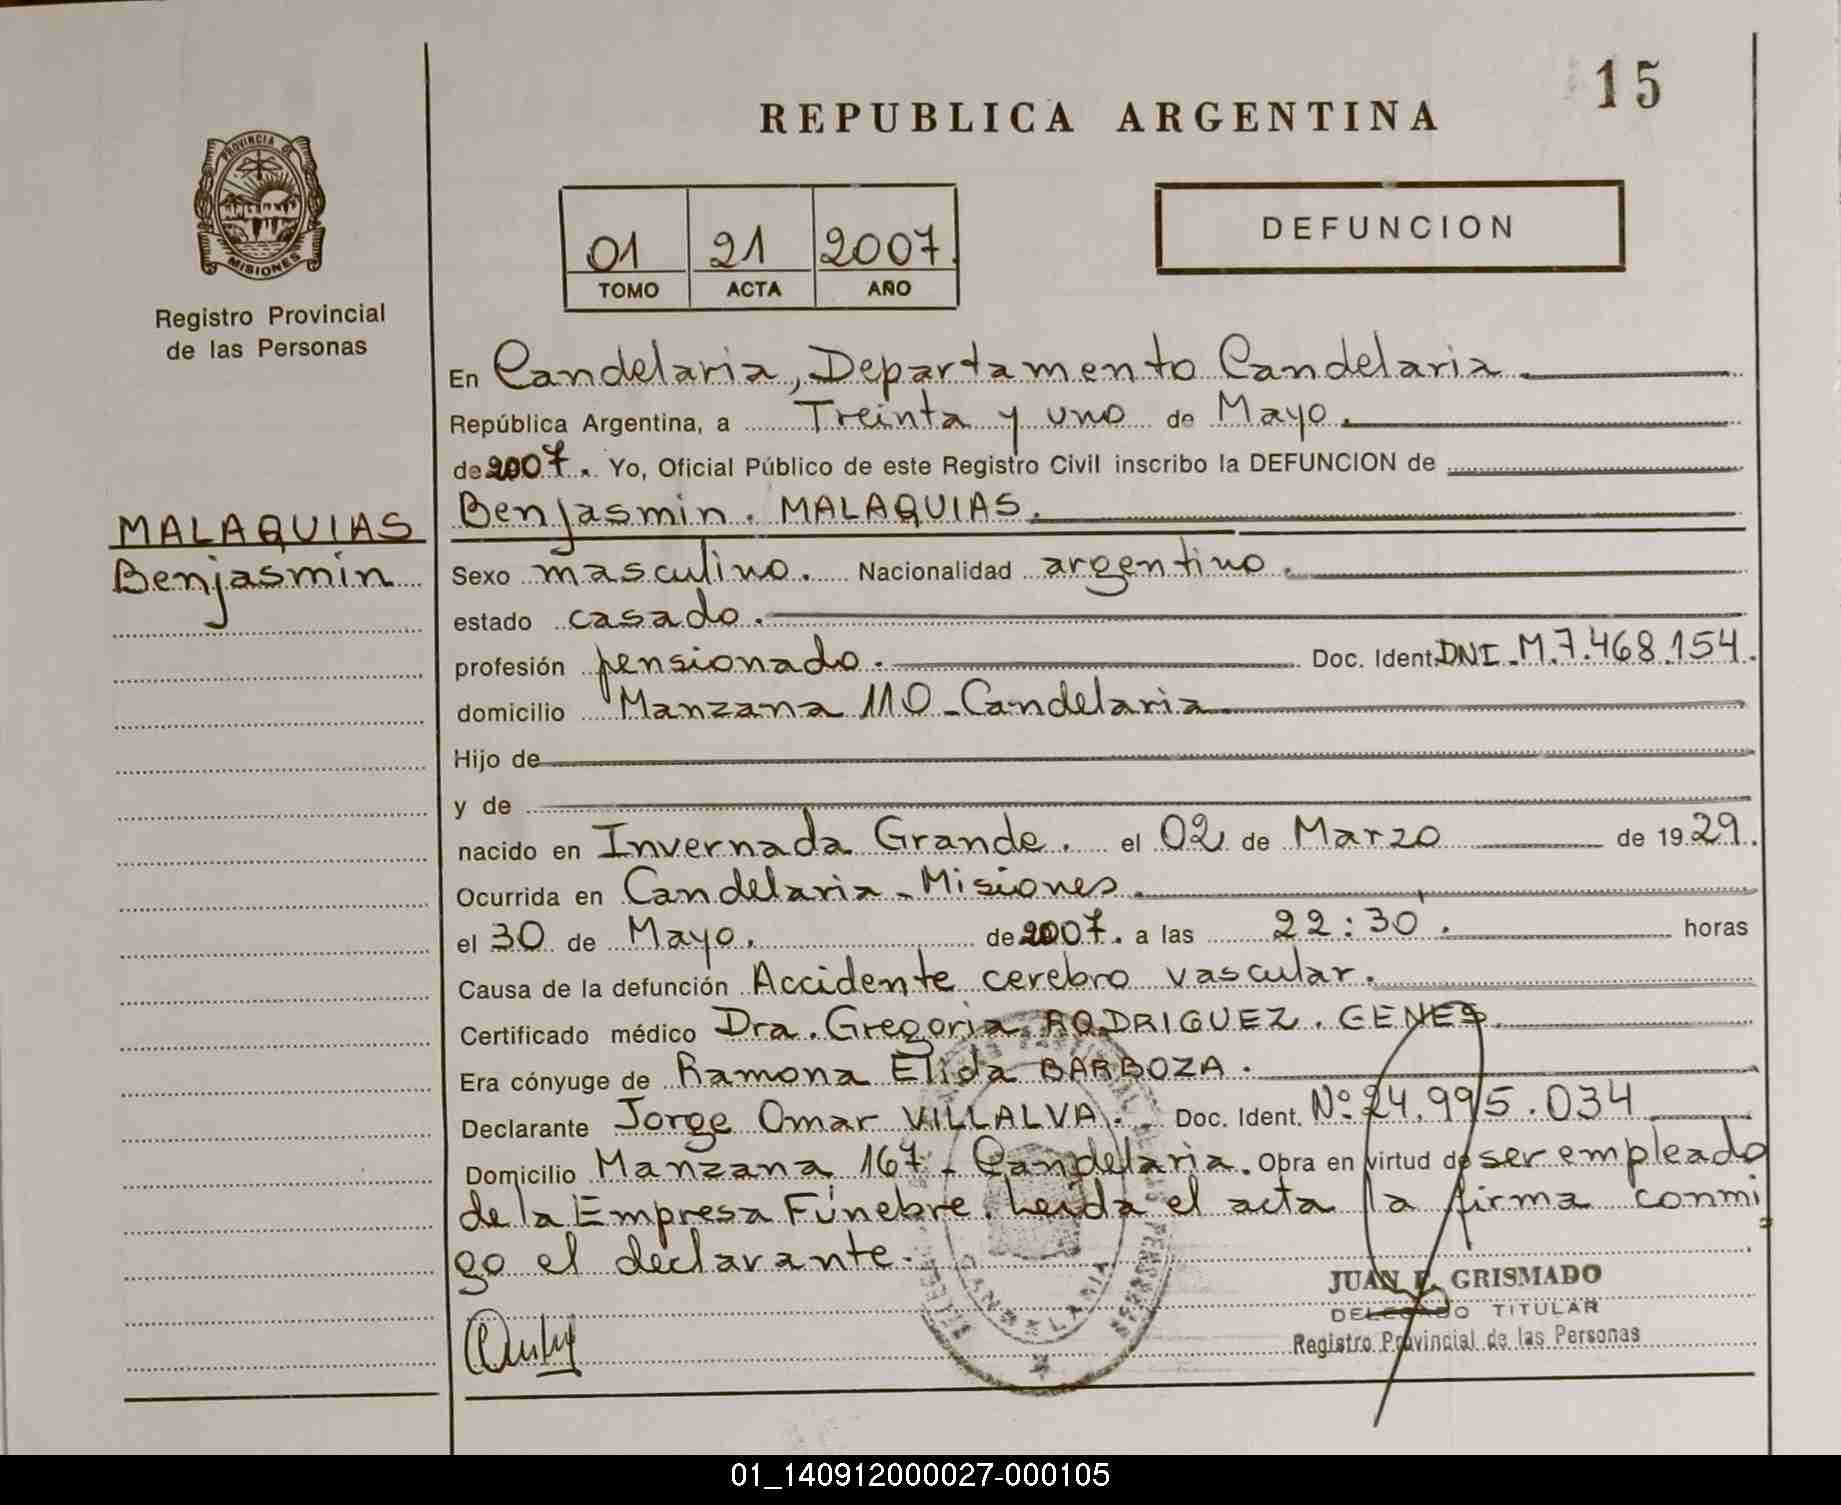 15
REPUBLICA ARGENTINA
PROVINCIA DE
MISIONES
Registro Provincial
de las Personas
01 21 2007
TOMO ACTA AÑO
DEFUNCION
En Candelaria, Departamento Candelaria
República Argentina, a Treinta y uno de Mayo.
de 2007. Yo, Oficial Público de este Registro Civil inscribo la DEFUNCION de
MALAQUIAS
Benjasmin
Benjasmin. MALAQUIAS.
Sexo masculino. Nacionalidad argentino.
estado casado.
profesión pensionado. Doc. Ident. DNI. M.7.468.154.
domicilio Manzana 110 - Candelaria
Hijo de
y de
nacido en Invernada Grande. el 02 de Marzo de 1929.
Ocurrida en Candelaria - Misiones.
el 30 de Mayo. de 2007. a las 22:30'. horas
Causa de la defunción Accidente cerebro vascular.
Certificado médico Dra. Gregoria RODRIGUEZ. GENES.
Era cónyuge de Ramona Elida BARBOZA.
Declarante Jorge Omar VILLALVA. Doc. Ident. Nº 24.995.034
Domicilio Manzana 167 - Candelaria. Obra en virtud de ser empleado
de la Empresa Fúnebre. Leída el acta la firma conmi
go el declarante.
CANDELARIA
JUAN GRISMADO
DELEGADO TITULAR
Registro Provincial de las Personas
01_140912000027-000105